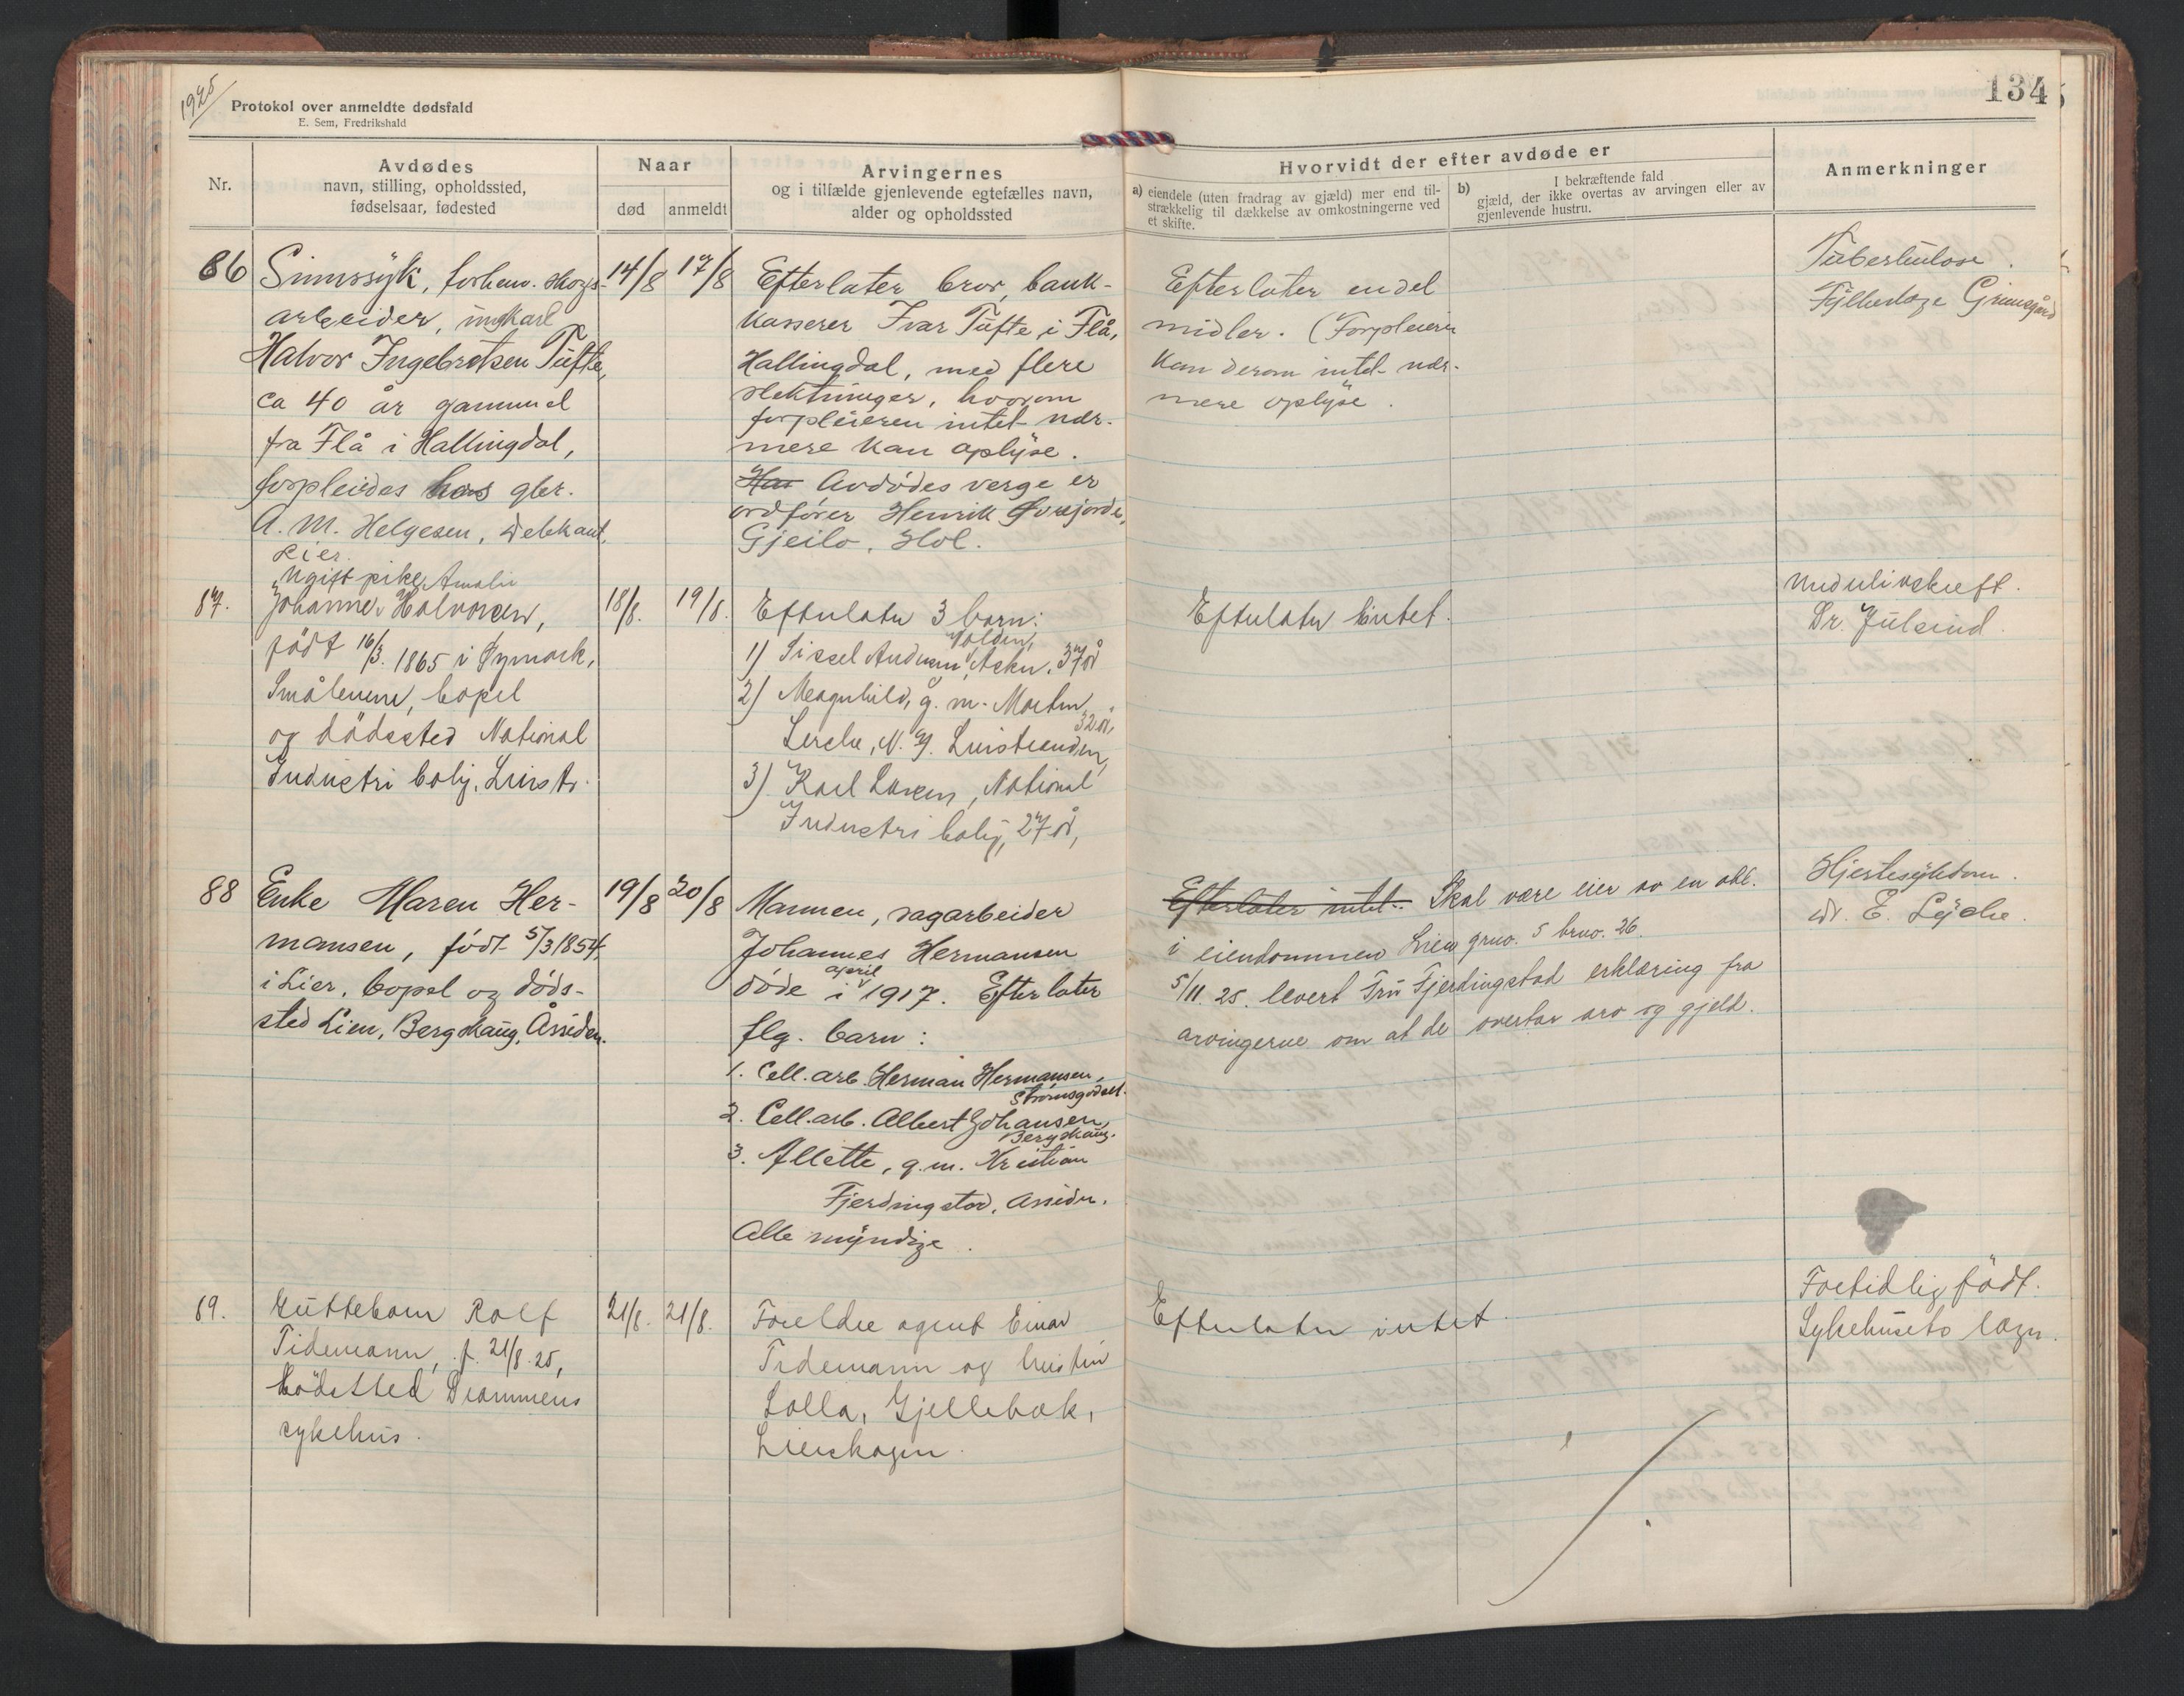 1925
Protokol over anmeldte dødsfald
E. Sem, Fredrikshald
134
Nr.
Avdødes
navn, stilling, opholdssted,
fødselsaar, fødested
Naar
død
anmeldt
Arvingernes
og i tilfælde gjenlevende egtefælles navn,
alder og opholdssted
Hvorvidt der efter avdøde er
a) eiendele (uten fradrag av gjæld) mer end til-
strækkelig til dækkelse av omkostningerne ved
et skifte.
b) I bekræftende fald
gjæld, der ikke overtas av arvingen eller av
gjenlevende hustru.
Anmerkninger
86
Sinnssyk, forhenv. skogs-
arbeider, ungkarl
Halvor Ingebretsen Tufte,
ca 40 år gammel
fra Flå i Hallingdal,
forpleiedes hos gbr.
A. M. Helgesen,
Lier.
14/8
17/8
Efterlater bror, bank-
kasserer Ivar Tufte i Flå,
Hallingdal, med flere
slektninger, hvorom
forpleieren intet nær-
mere kan oplyse.
Har Avdødes verge er
ordfører Henrik Øvrejorde,
Gjeilo, Hol.
Efterlater endel
midler. (Forpleieren
kan derom intet nær-
mere oplyse.
Tuberkulose.
Fylkeslæge Grimsgård
87.
Ugift pike Amalie
Johanne Halvorsen,
født 16/3. 1865 i Øymark,
Smålenene, bopel
og dødssted National
Industri bolig, Lierstr.
18/8.
19/8.
Efterlater 3 barn:
1) Sissel Andersen, Volden, Asker, 37 år
2) Magnhild, g. m. Morten
Lerche, N. Y. Lierstranden, 32 år,
3) Karl Larsen, National
Industri bolig, 27 år,
Efterlater intet.
Underlivskreft.
Dr. Julsrud.
88
Enke Maren Her-
mansen, født 5/3 1854
i Lier, bopel og døds-
sted Lien, Bergskaug, Åssiden.
19/8
20/8
Mannen, sagarbeider
Johannes Hermansen
døde i april 1917. Efterlater
flg. barn:
1. Cell. arb. Herman Hermansen,
Strømsgodset.
2. Cell. arb. Albert Johansen,
Bergskaug.
3. Allette, g. m. Kristian
Fjerdingstad, Assiden.
Alle myndige.
Efterlater intet. Skal være eier av en
i eiendommen Lien gno. 5 bno. 26.
5/11. 25. levert Fru Fjerdingstad erklæring fra
arvingerne om at de overtar arv og gjeld.
Hjertesykdom.
dr. E. Lyche.
89.
Guttebarn Rolf
Tidemann, f. 21/8. 25,
dødssted Drammens
sykehus.
21/8.
21/8.
Foreldre agent Einar
Tidemann og hustru
Lolla, Gjellebæk,
Lierskogen.
Efterlater intet.
Fortidlig født.
Sykehusets læge.